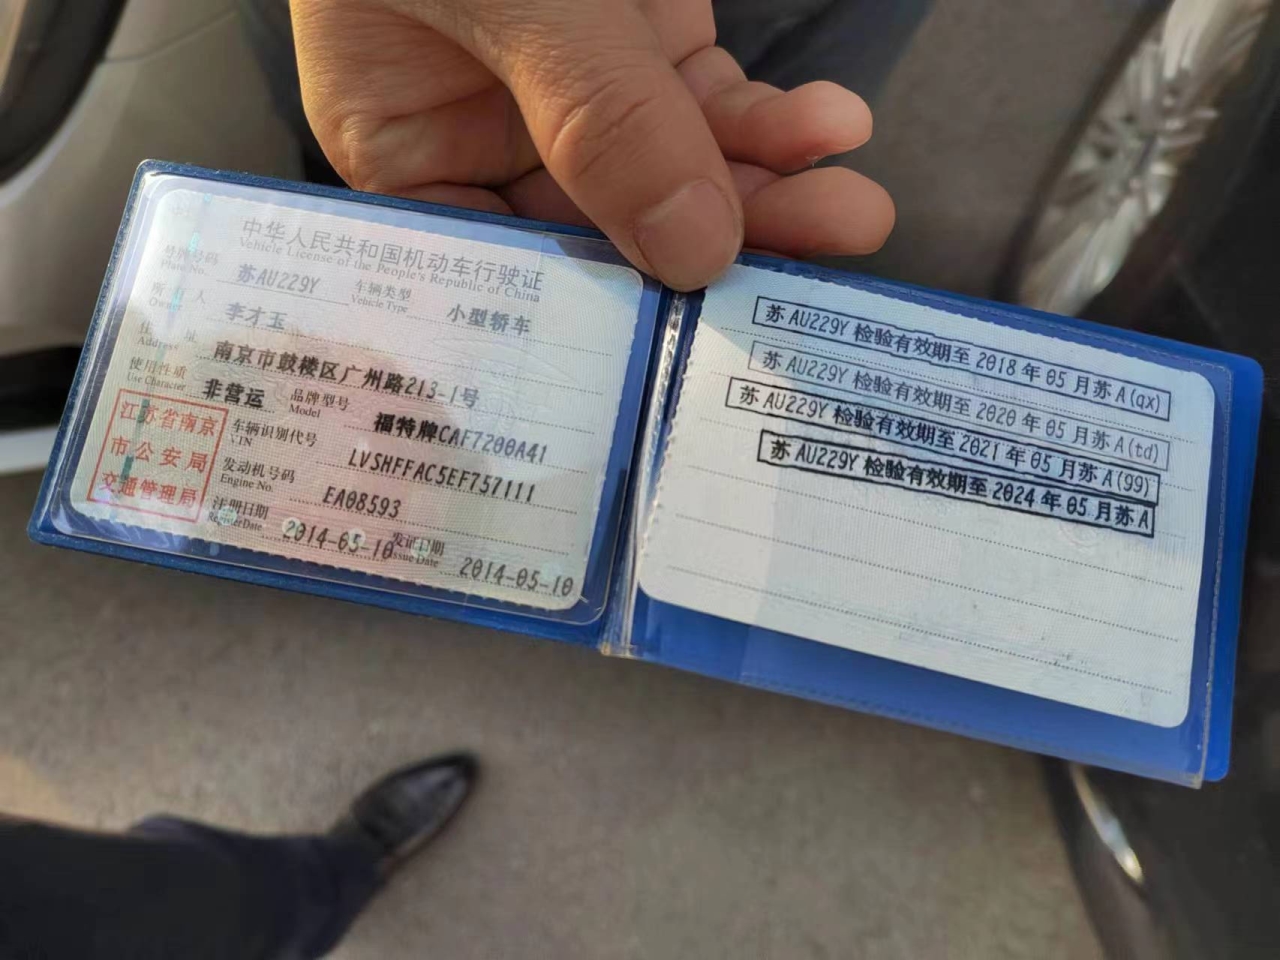 中华人民共和国机动车行驶证
Vehicle License of the People's Republic of China
号牌号码 苏AU229Y 车辆类型 小型轿车
Plate No. Vehicle Type
所有人 李才玉
Owner
住址 南京市鼓楼区广州路213-1号
Address
使用性质 非营运 品牌型号 福特牌CAF7200A41
Use Character Model
车辆识别代号 LVSHFFAC5EF757111
VIN
发动机号码 EA08593
Engine No.
注册日期 2014-05-10 发证日期 2014-05-10
Register Date Issue Date
江苏省南京
市公安局
交通管理局
苏AU229Y 检验有效期至2018年05月苏A(qx)
苏AU229Y 检验有效期至2020年05月苏A(td)
苏AU229Y 检验有效期至2021年05月苏A(99)
苏AU229Y 检验有效期至2024年05月苏A